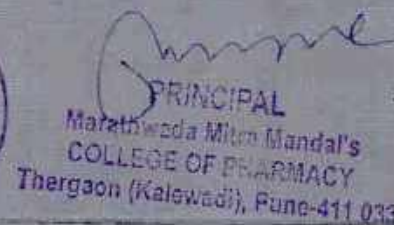 PRINCIPAL
Marathwada Mitra Mandal's
COLLEGE OF PHARMACY
Thergaon (Kalewadi), Pune-411 033